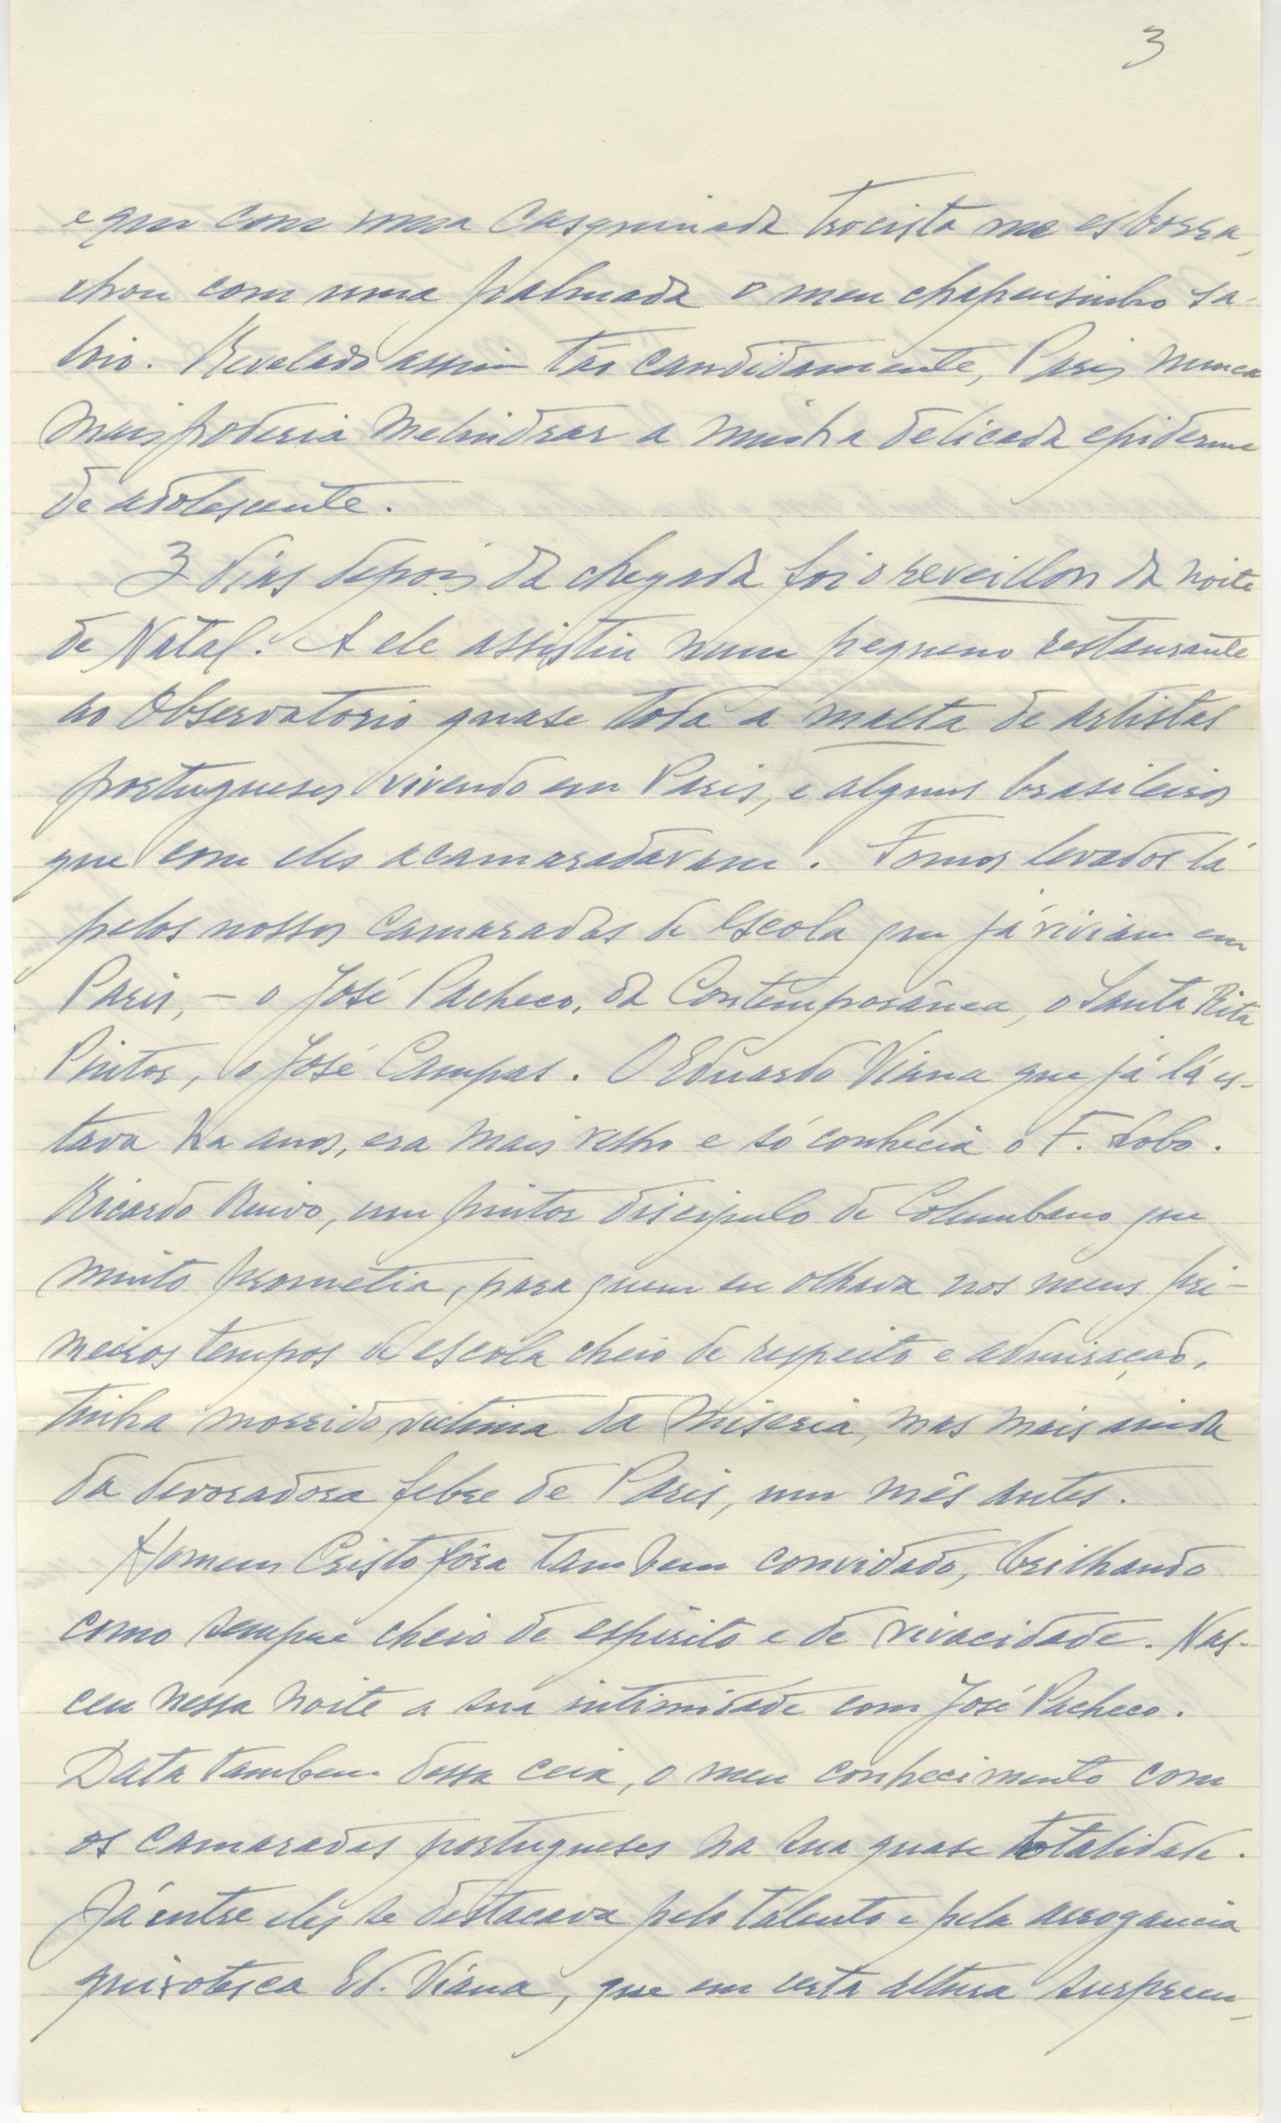 3
e que com uma casquinada trocista me esborra-
chou com uma palmada o meu chapeusinho sa-
loio. Revelado assim tão candidamente, Paris nunca
mais poderia melindrar a minha delicada epiderme
de adolescente.
3 dias depois da chegada foi o reveillon da noite
de Natal. A ele assistiu num pequeno restaurante
ao Observatorio quase toda a malta de artistas
portugueses vivendo em Paris, e alguns brasileiros
que com eles acamaradavam. Fomos levados lá
pelos nossos camaradas de escola que já viviam em
Paris, – o José Pacheco, da Contemporânea, o Santa Rita
Pintor, o José Campas. O Eduardo Viana que já lá es-
tava ha anos, era mais velho e só conhecia o F. Lobo.
Ricardo Ruivo, um pintor discipulo de Columbano que
muito prometia, para quem eu olhava nos meus pri-
meiros tempos de escola cheio de respeito e admiração,
tinha morrido victima da miseria, mas mais ainda
da devoradora febre de Paris, um mês antes.
Homem Cristo fôra tambem convidado, brilhando
como sempre cheio de espirito e de vivacidade. Nas-
ceu nessa noite a sua intimidade com José Pacheco.
Data tambem dessa ceia, o meu conhecimento com
os camaradas portugueses na sua quase totalidade.
Já entre eles se destacava pelo talento e pela arrogancia
quixotesca Ed. Viana, que em certa altura surpreen-